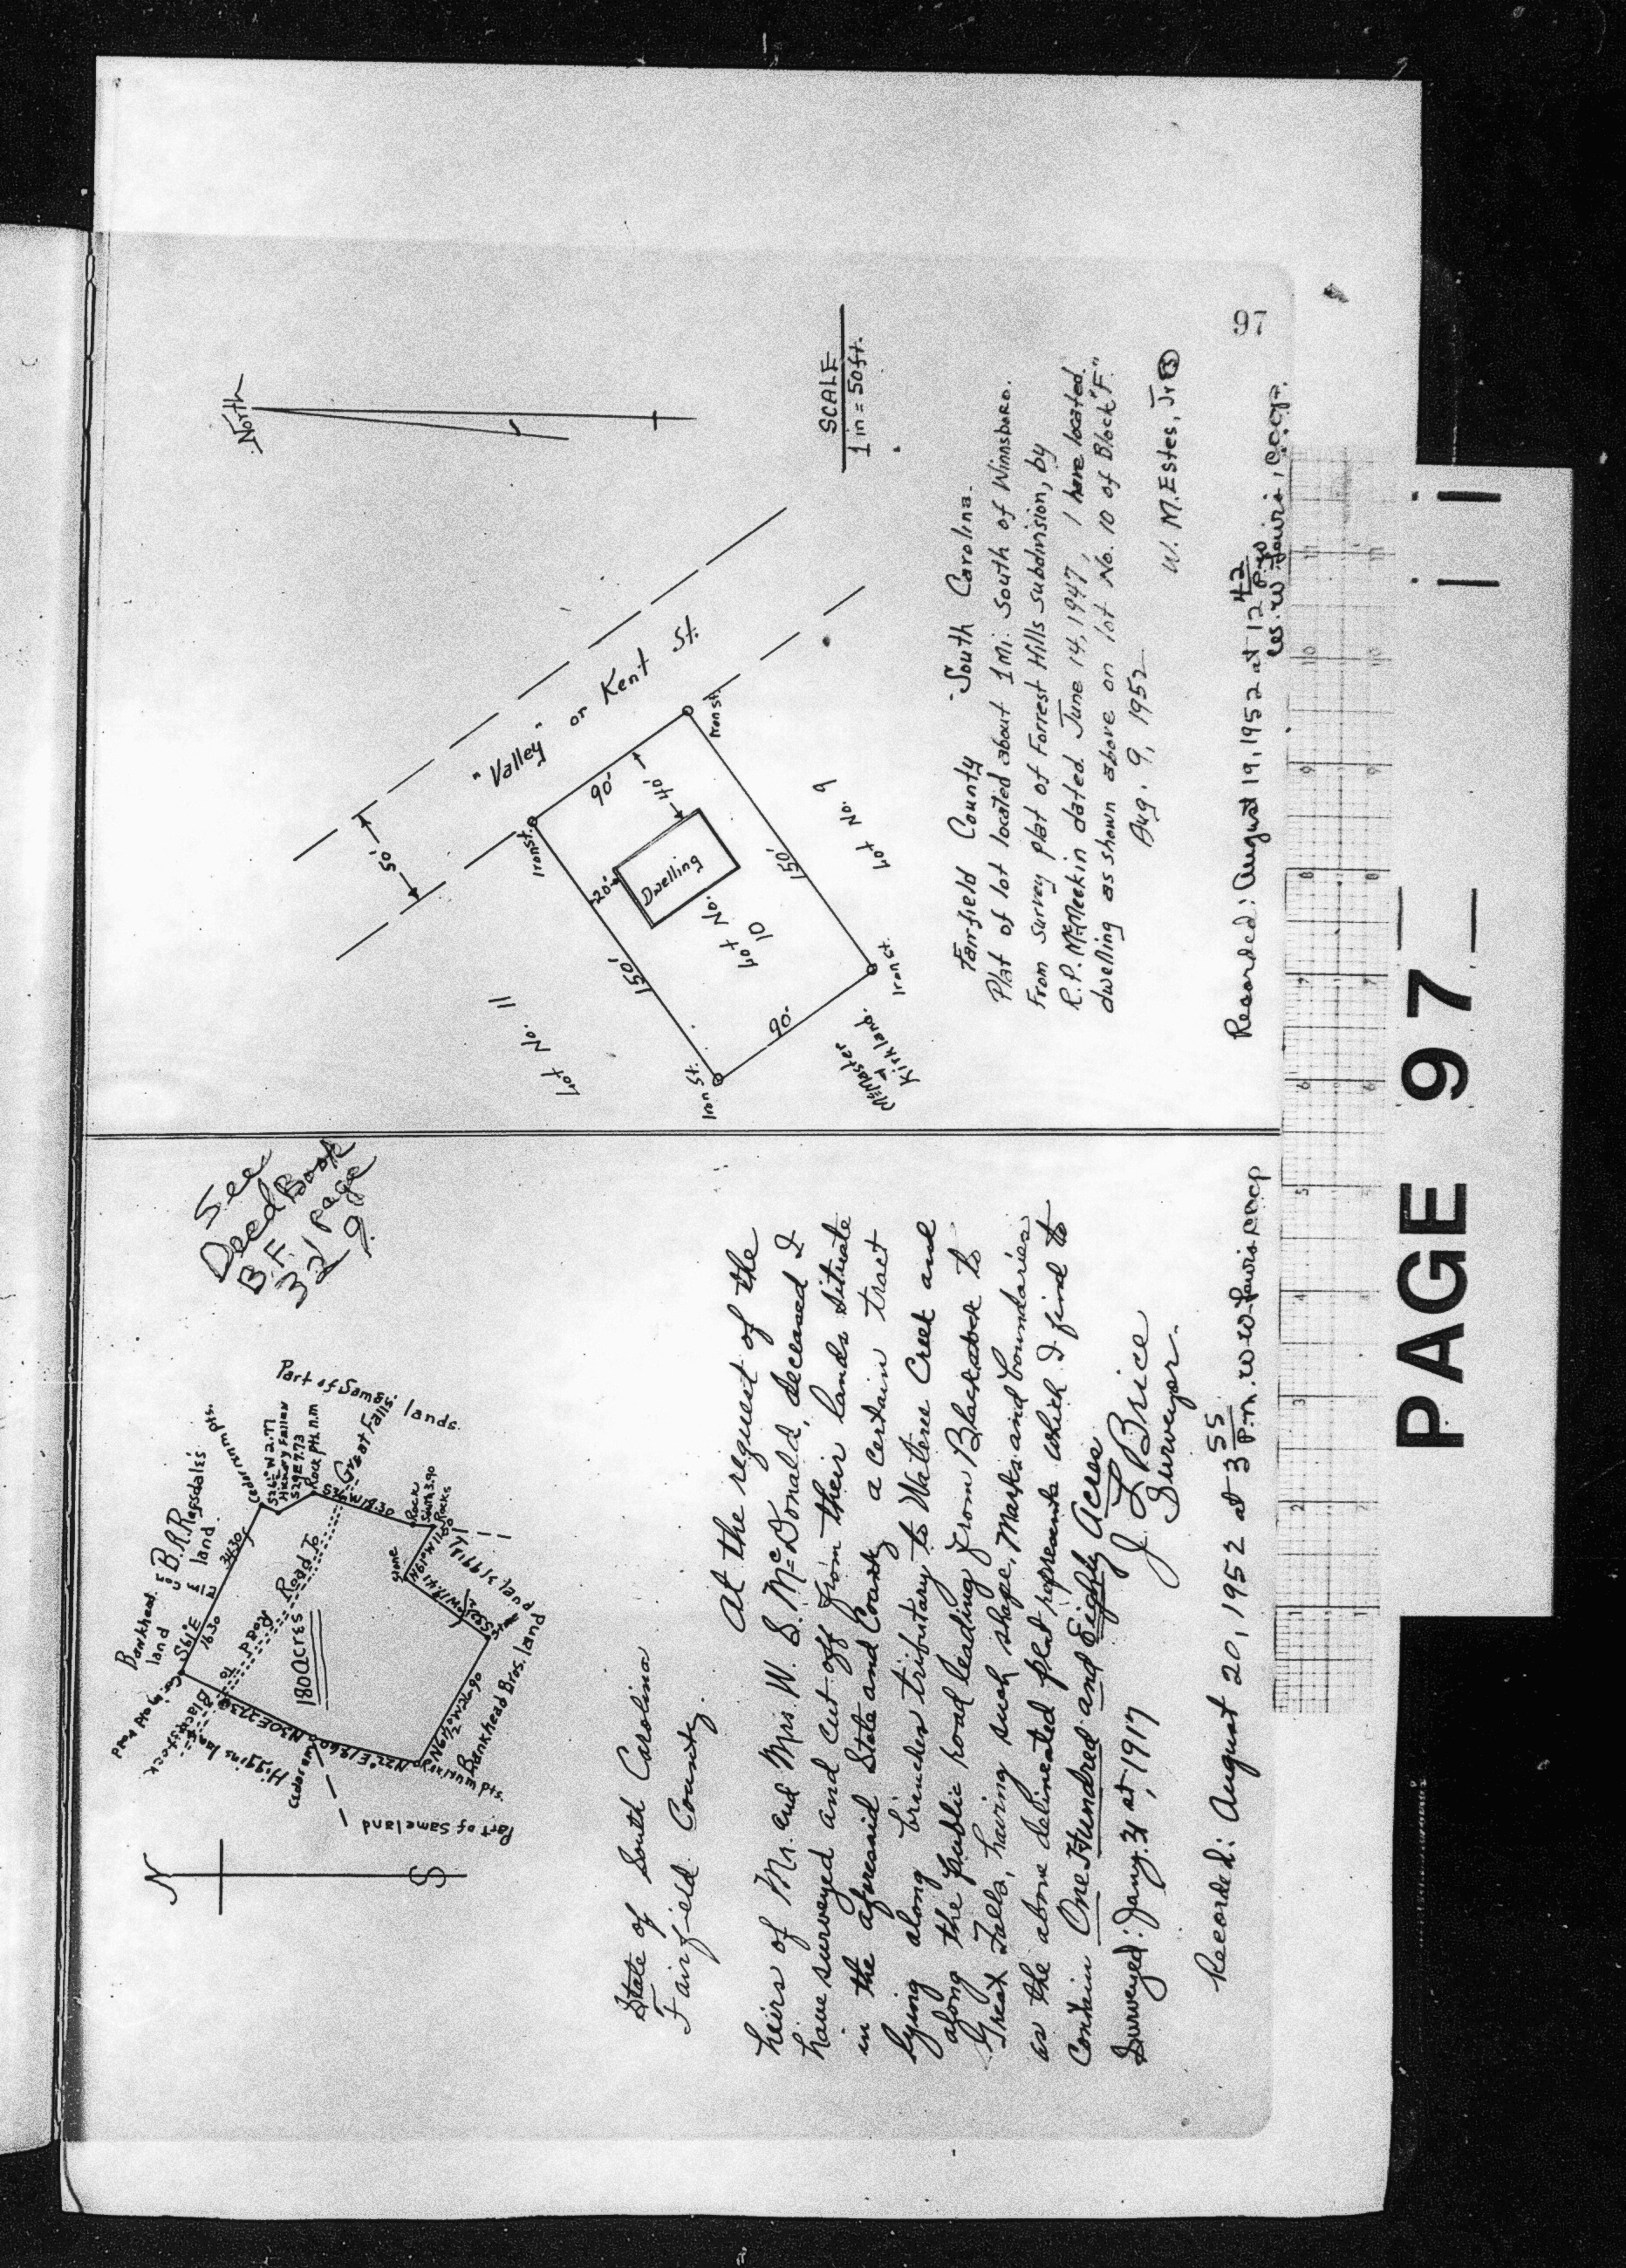 See
Deed Book
B.F. page
329.
N
S
Bankhead
land
B.R. Ragsdale's
land
S61°E
16.30
34.30
Hickory Fallen
S29E 7.73
Rock Pts. n.m
S36W19.30
Rock
Rocks
Stone
Road To
Great Falls
Road To
Blackstock
180 Acres
Part of Same lands
Tribbls land
Bankhead Bros. land
N61½°W26.90
N22°E18.60
Higgins land
Part of Same land
State of South Carolina
Fairfield County.
At the request of the
heirs of Mr. and Mrs. W. S. McDonald, deceased I
have surveyed and cut off from their lands situate
in the aforesaid State and County a certain tract
lying along brinches tributary to Wateree Creek and
along the public road leading from Blackstock to
Great Falls, having such shape, Marks and boundaries
as the above delineated plat represents which I find to
Contain One Hundred and Eighty Acres
Surveyed: Jany. 31st, 1917
J. L Brice
Surveyor.
Recorded: August 20, 1952 at 3 55 P.m. W.W. Lewis CCCP
North
"Valley" or Kent St.
50'
Iron St.
90'
Iron St.
40'
20'
Dwelling
150'
150'
Lot No.
10
Lot No. 11
Lot No. 9
90'
Iron St.
Iron St.
McMaster
&
Kirkland.
SCALE
1 in = 50 ft.
Fairfield County South Carolina.
Plat of lot located about 1 Mi. South of Winnsboro.
From survey plat of Forrest Hills subdivision, by
R.P. McMeekin dated June 14, 1947, I have located
dwelling as shown above on lot No. 10 of Block "F."
Aug. 9, 1952
W. M. Estes, Jr
Recorded: August 19, 1952 at 12 42 P.m
97
1 2 3 4 5 6 7 8 9 10 11
PAGE 97